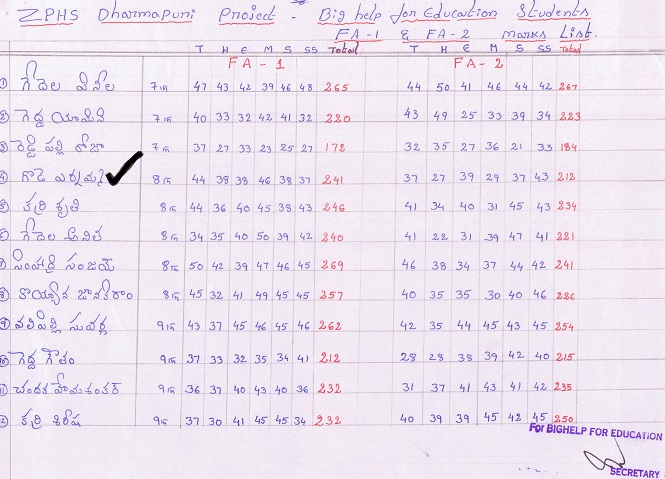 ZPHS Dharmapuri Project - Big help for Education Students
FA-1 & FA-2 marks List.
T H E M S SS Total T H E M S SS Total
FA-1 FA-2
① గేదెల వినీల 7th 47 43 42 39 46 48 265 44 50 41 46 44 42 267
② గెద్ద యామిని 7th 40 33 32 42 41 32 220 43 49 25 33 39 34 223
③ రెడ్డి పల్లి రోజా 7th 37 27 33 23 25 27 172 32 35 27 36 21 33 184
④ 8th 44 38 38 46 38 37 241 37 27 39 29 37 43 212
⑤ కర్రి శృతి 8th 44 36 40 45 38 43 246 41 34 40 31 45 43 234
⑥ గేదెల అనిత 8th 34 35 40 50 39 42 240 41 22 31 39 47 41 221
⑦ సింహాద్రి సంజయ్ 8th 50 42 39 47 46 45 269 46 38 34 37 44 42 241
⑧ కొయ్యాన జానకిరాం 8th 45 32 41 49 45 45 257 40 35 35 30 40 46 226
⑨ వలిపిల్లి సువర్ణ 9th 43 37 45 46 45 46 262 42 35 44 45 43 45 254
⑩ గెద్ద గౌతం 9th 37 33 32 35 34 41 212 28 28 38 39 42 40 215
⑪ చందక హేమశంకర్ 9th 36 37 40 43 40 36 232 31 37 41 43 41 42 235
⑫ కర్రి శిరీష 9th 37 30 41 45 45 34 232 40 39 39 45 42 45 250
For BIGHELP FOR EDUCATION
SECRETARY